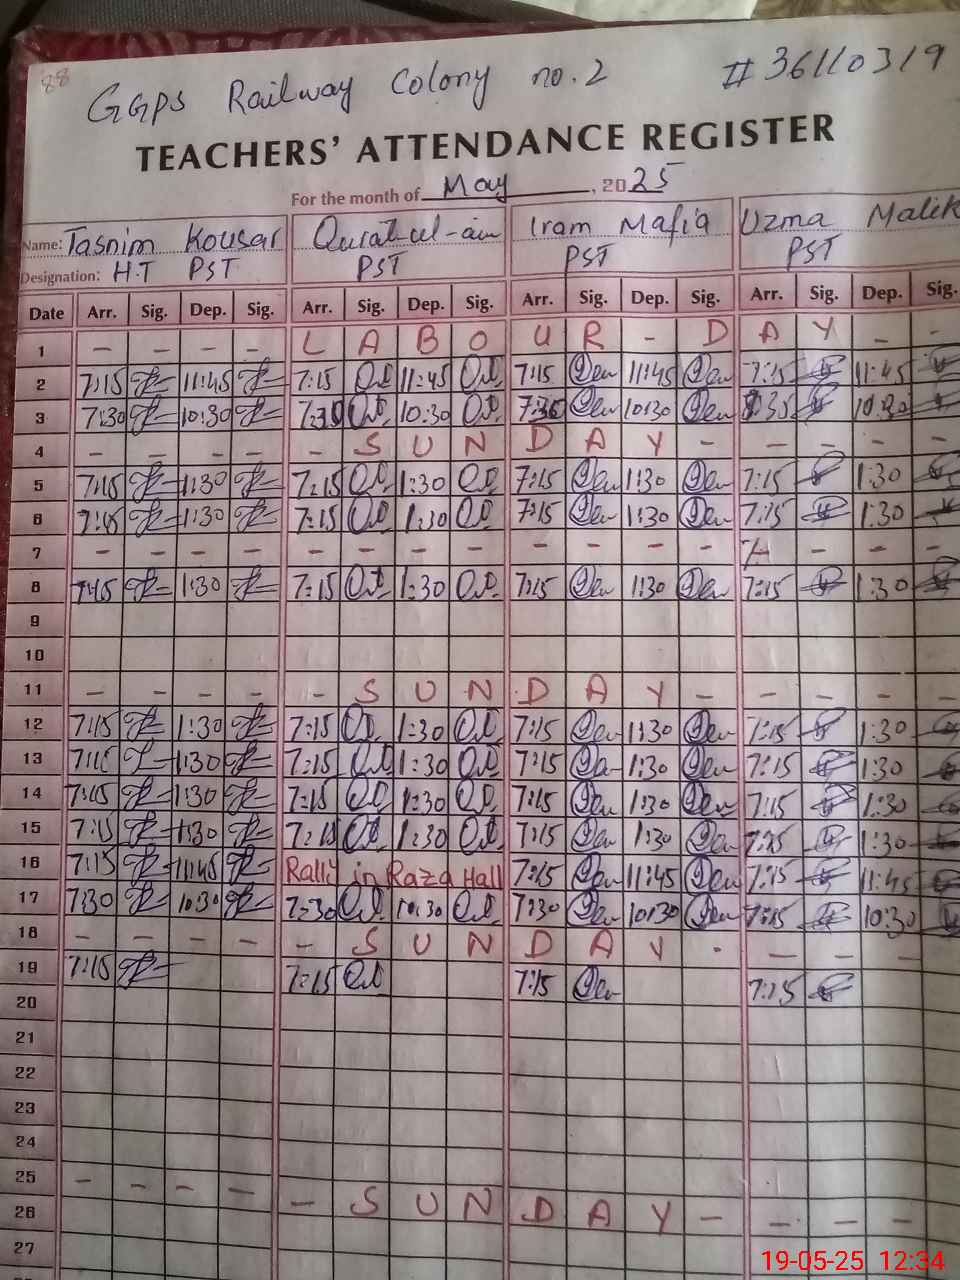 88
GGPS Railway Colony no. 2 # 36110319
TEACHERS' ATTENDANCE REGISTER
For the month of May, 2025
Name: Tasnim Kousar Qurat-ul-ain Iram Mafia Uzma Malik
Designation: H.T PST PST PST PST
Date Arr. Sig. Dep. Sig. Arr. Sig. Dep. Sig. Arr. Sig. Dep. Sig. Arr. Sig. Dep. Sig.
1 - - - - L A B O U R - D A Y - -
2 7:15 11:45 7:15 11:45 7:15 11:45 7:15 11:45
3 7:30 10:30 7:30 10:30 7:30 10:30 10:30
4 - - - - - S U N D A Y - - - - -
5 7:15 1:30 7:15 1:30 7:15 1:30 7:15 1:30
6 7:15 1:30 7:15 1:30 7:15 1:30 7:15 1:30
7 - - - - - - - - - - - - 7- - - -
8 7:15 1:30 7:15 1:30 7:15 1:30 7:15 1:30
9
10
11 - - - - - S U N D A Y - - - - -
12 7:15 1:30 7:15 1:30 7:15 1:30 7:15 1:30
13 7:15 1:30 7:15 1:30 7:15 1:30 7:15 1:30
14 7:15 1:30 7:15 1:30 7:15 1:30 7:15 1:30
15 7:15 1:30 7:15 1:30 7:15 1:30 7:15 1:30
16 7:15 11:45 Rally in Raza Hall 7:15 11:45 7:15 11:45
17 7:30 10:30 7:30 10:30 7:30 10:30 7:15 10:30
18 - - - - - S U N D A Y - - - - -
19 7:15 7:15 7:15 7:15
20
21
22
23
24
25 - - - - - S U N D A Y - - - -
26
27
19-05-25 12:34